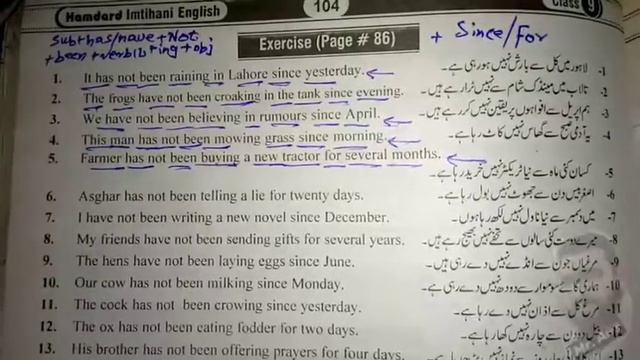 Hamdard Imtihani English
104
Class 9
Sub+has/have+Not
+been+verb(1)+ing+obj
+ Since/For
Exercise (Page # 86)
1. It has not been raining in Lahore since yesterday.
1- لاہور میں کل سے بارش نہیں ہو رہی ہے۔
2. The frogs have not been croaking in the tank since evening.
2- تالاب میں مینڈک شام سے نہیں ٹرا رہے ہیں۔
3. We have not been believing in rumours since April.
3- ہم اپریل سے افواہوں پر یقین نہیں کر رہے ہیں۔
4. This man has not been mowing grass since morning.
4- یہ آدمی صبح سے گھاس نہیں کاٹ رہا ہے۔
5. Farmer has not been buying a new tractor for several months.
5- کسان کئی ماہ سے نیا ٹریکٹر نہیں خرید رہا ہے۔
6. Asghar has not been telling a lie for twenty days.
6- اصغر بیس دن سے جھوٹ نہیں بول رہا ہے۔
7. I have not been writing a new novel since December.
7- میں دسمبر سے نیا ناول نہیں لکھ رہا ہوں۔
8. My friends have not been sending gifts for several years.
8- میرے دوست کئی سالوں سے تحفے نہیں بھیج رہے ہیں۔
9. The hens have not been laying eggs since June.
9- مرغیاں جون سے انڈے نہیں دے رہی ہیں۔
10. Our cow has not been milking since Monday.
10- ہماری گائے سوموار سے دودھ نہیں دے رہی ہے۔
11. The cock has not been crowing since yesterday.
11- مرغ کل سے اذان نہیں دے رہا ہے۔
12. The ox has not been eating fodder for two days.
12- بیل دو دن سے چارہ نہیں کھا رہا ہے۔
13. His brother has not been offering prayers for four days.